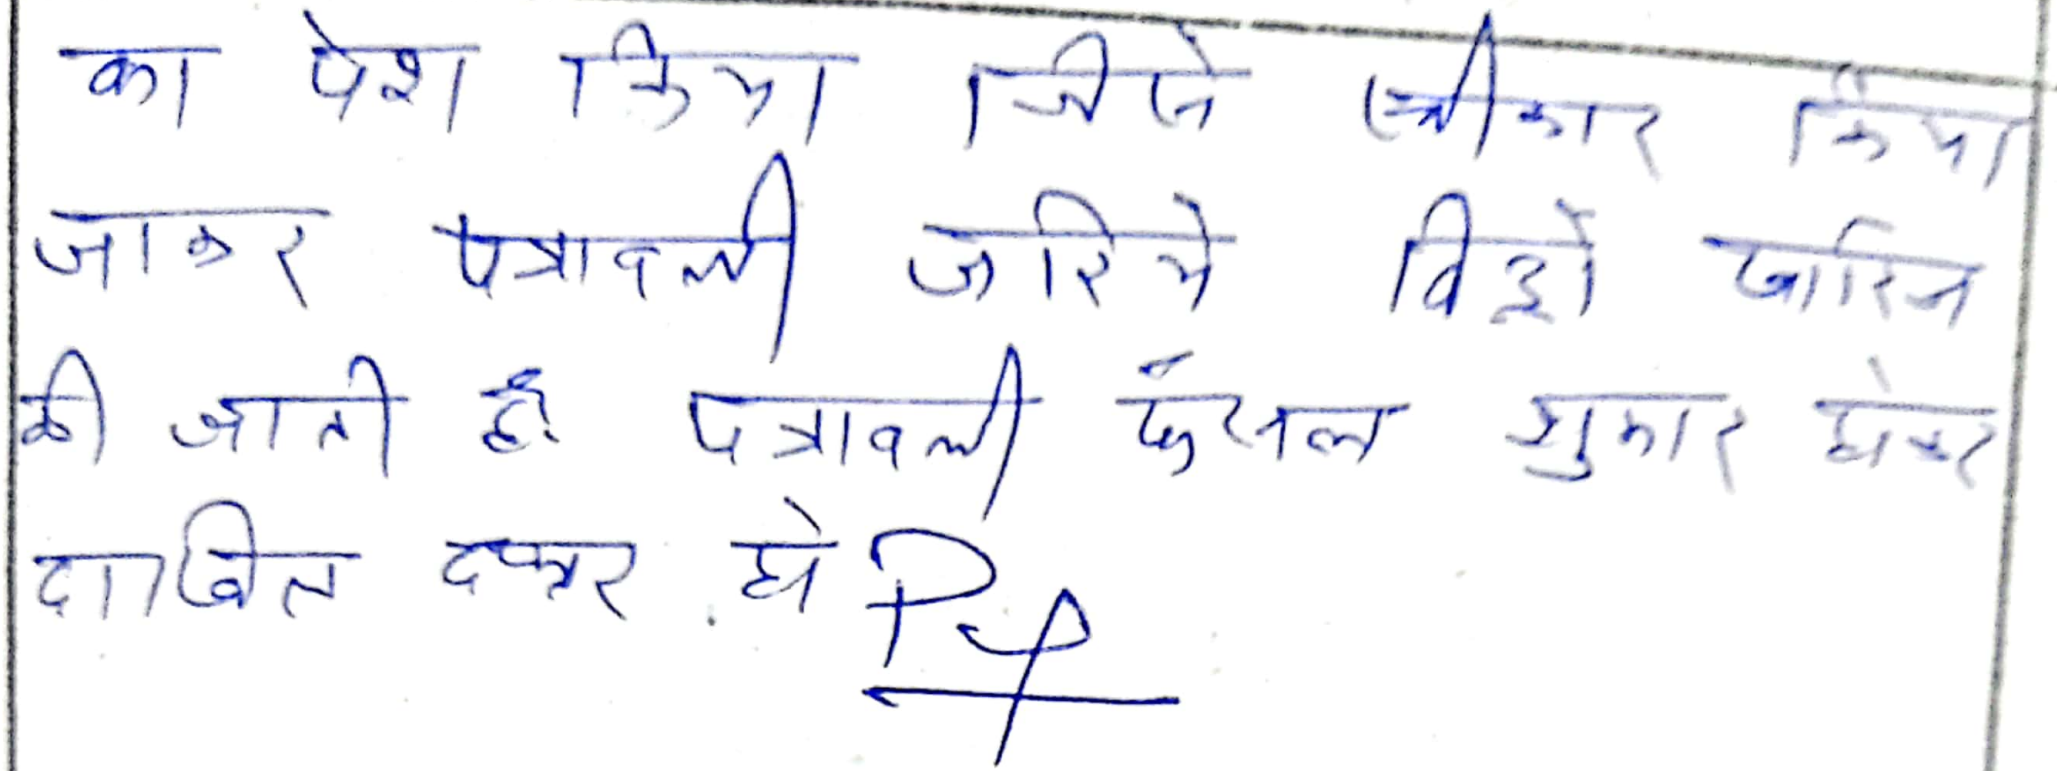 का पेश किया जिसे स्वीकार किया
जाकर पत्रावली जरिये विड्रो खारिज
की जाती है। पत्रावली फैसल शुमार होकर
दाखिल दफ्तर हो